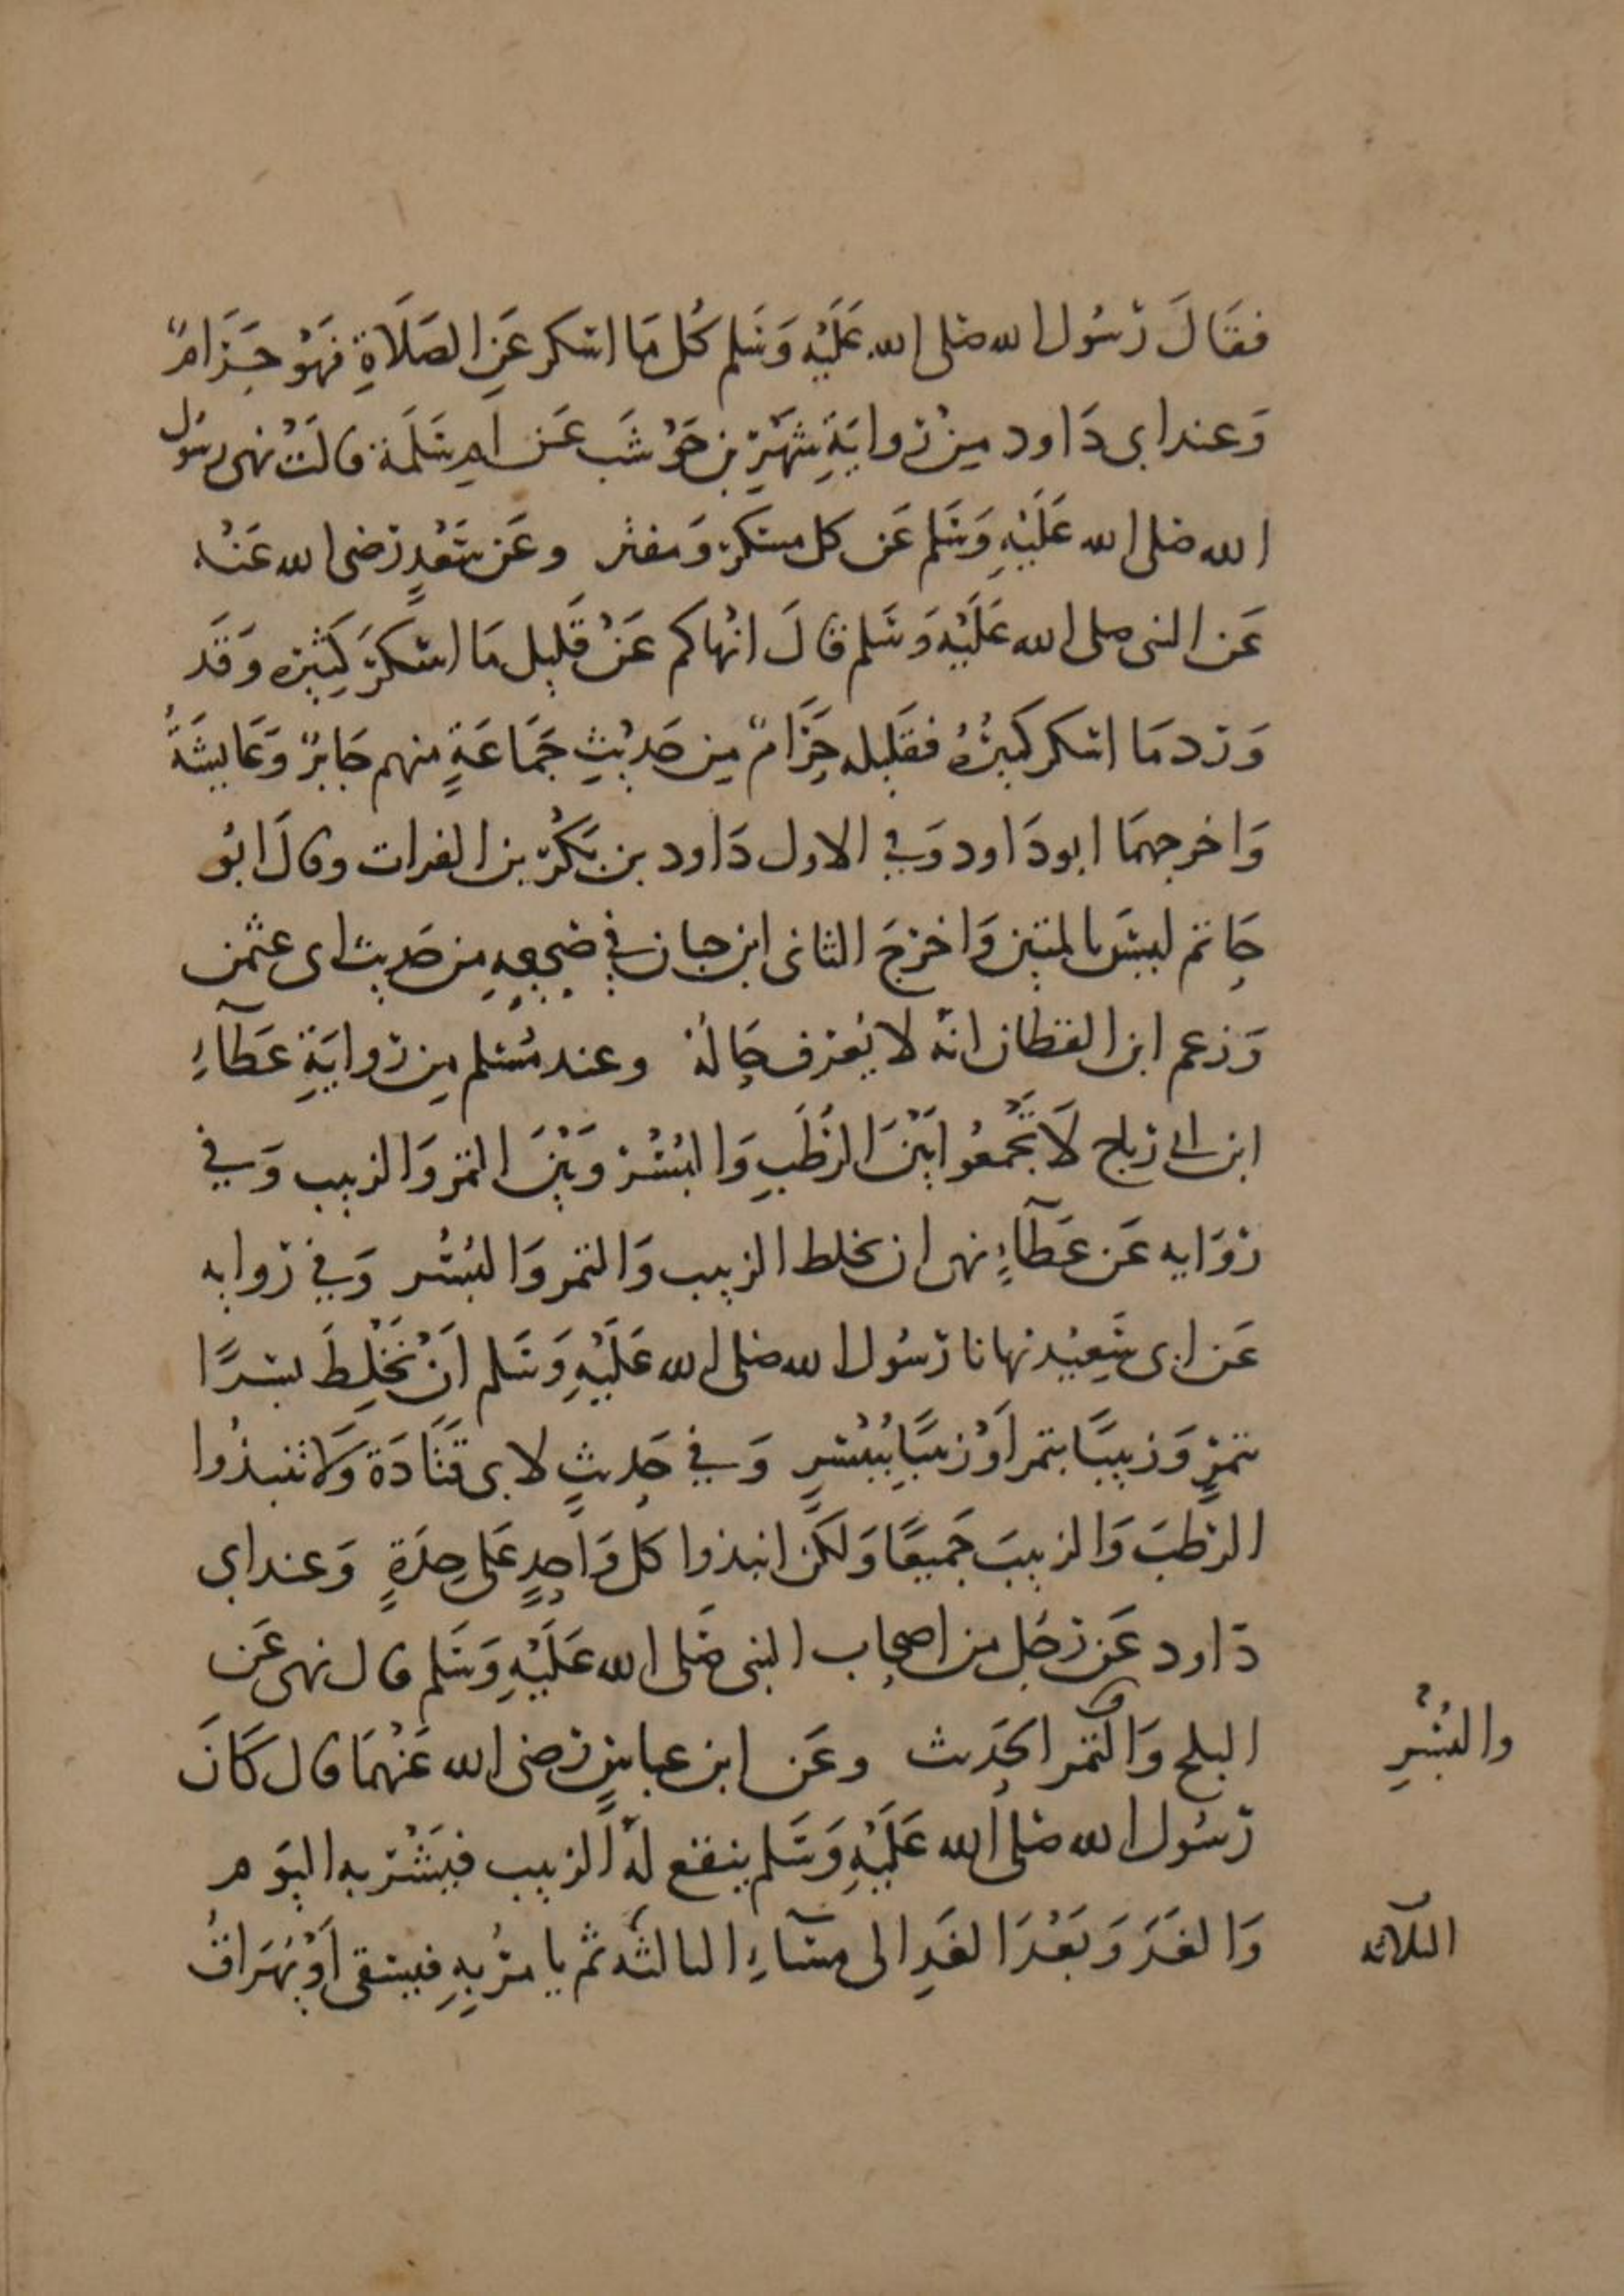 فقَالَ رَسُول الله صَلى الله عَلَيْه وَسَلم كُل مَا اسْكر عَنِ الصَلَاةِ فهُوَ حَرَامٌ
وَعند ابى دَاود مِنْ رِوايَةِ شَهْرِ بن حَوْشَب عَن ام سَلَمَة قالَتْ نهى رسُول
الله صَلى الله عَلَيْهِ وَسَلم عَن كل مسْكرٍ وَمفتر وعَن سَعْدٍ رَضى الله عَنْه
عَن النبى صلى الله عَلَيْه وَسَلم قالَ انْهاكم عَنْ قَلِيل مَا اسْكَرَ كَثِيْره وَقَد
وَرَد مَا اسْكر كَثِيْرُهُ فقَلِيله حَرَامٌ مِن حَدِيْثِ جَمَاعَةٍ منهم جَابِرٌ وَعَايِشَةُ
وَاخرجهمَا ابو دَاود وَفي الاول دَاود بن بَكْرِ بن الفرات وقالَ ابُو
حَاتم ليسَ بالمتِين وَاخرَج الثانى ابن حبان في صَحِيحِهِ من حَديث ابى عثمن
وَزعم ابن القطان انهُ لا يُعْرَف حَالهُ وعند مُسْلم مِن رِوايَةِ عَطَآءِ
ابن ابى رَباح لَا تَجْمعُوا بَيْنَ الرُطَبِ وَالبُسْر وَبَيْنَ التمر وَالزبيب وَفي
روَايه عَن عَطَآءٍ نهى ان يخلط الزبيب وَالتمر وَالبُسْر وَفي رواية
عَن ابى سَعِيْد نهانا رَسُول الله صَلى الله عَلَيْهِ وَسَلم اَنْ نَخْلِطَ بسْرًا
بتمرٍ وَزبِيبًا بتمر اَوْ زبِيبًا ببُسْرٍ وَفي حَديثٍ لابى قتَادَة وَلَا تنبذُوا
الرُطَبَ وَالزبيبَ جَمِيعًا وَلكن انبذوا كُل وَاحِدٍ عَلى حِدَةٍ وَعند ابى
دَاود عَن رَجُل من اصحاب النبى صَلى الله عَلَيْهِ وَسَلم قال نهى عَن
البلح وَالتمر الحَديث وعَن ابن عباسٍ رَضى الله عَنْهُمَا قال كَانَ
والبُسْرِ
رَسُول الله صَلى الله عَلَيْهِ وَسَلم ينقع لهُ الزبيب فيَشْربه اليَوم
وَالغَدَ وَبَعْدَ الغَدِ الى مسَآءِ الثالثَه ثم يامرُ بِهِ فيسقى اَوْ يُهَرَاقُ
الثلاثه